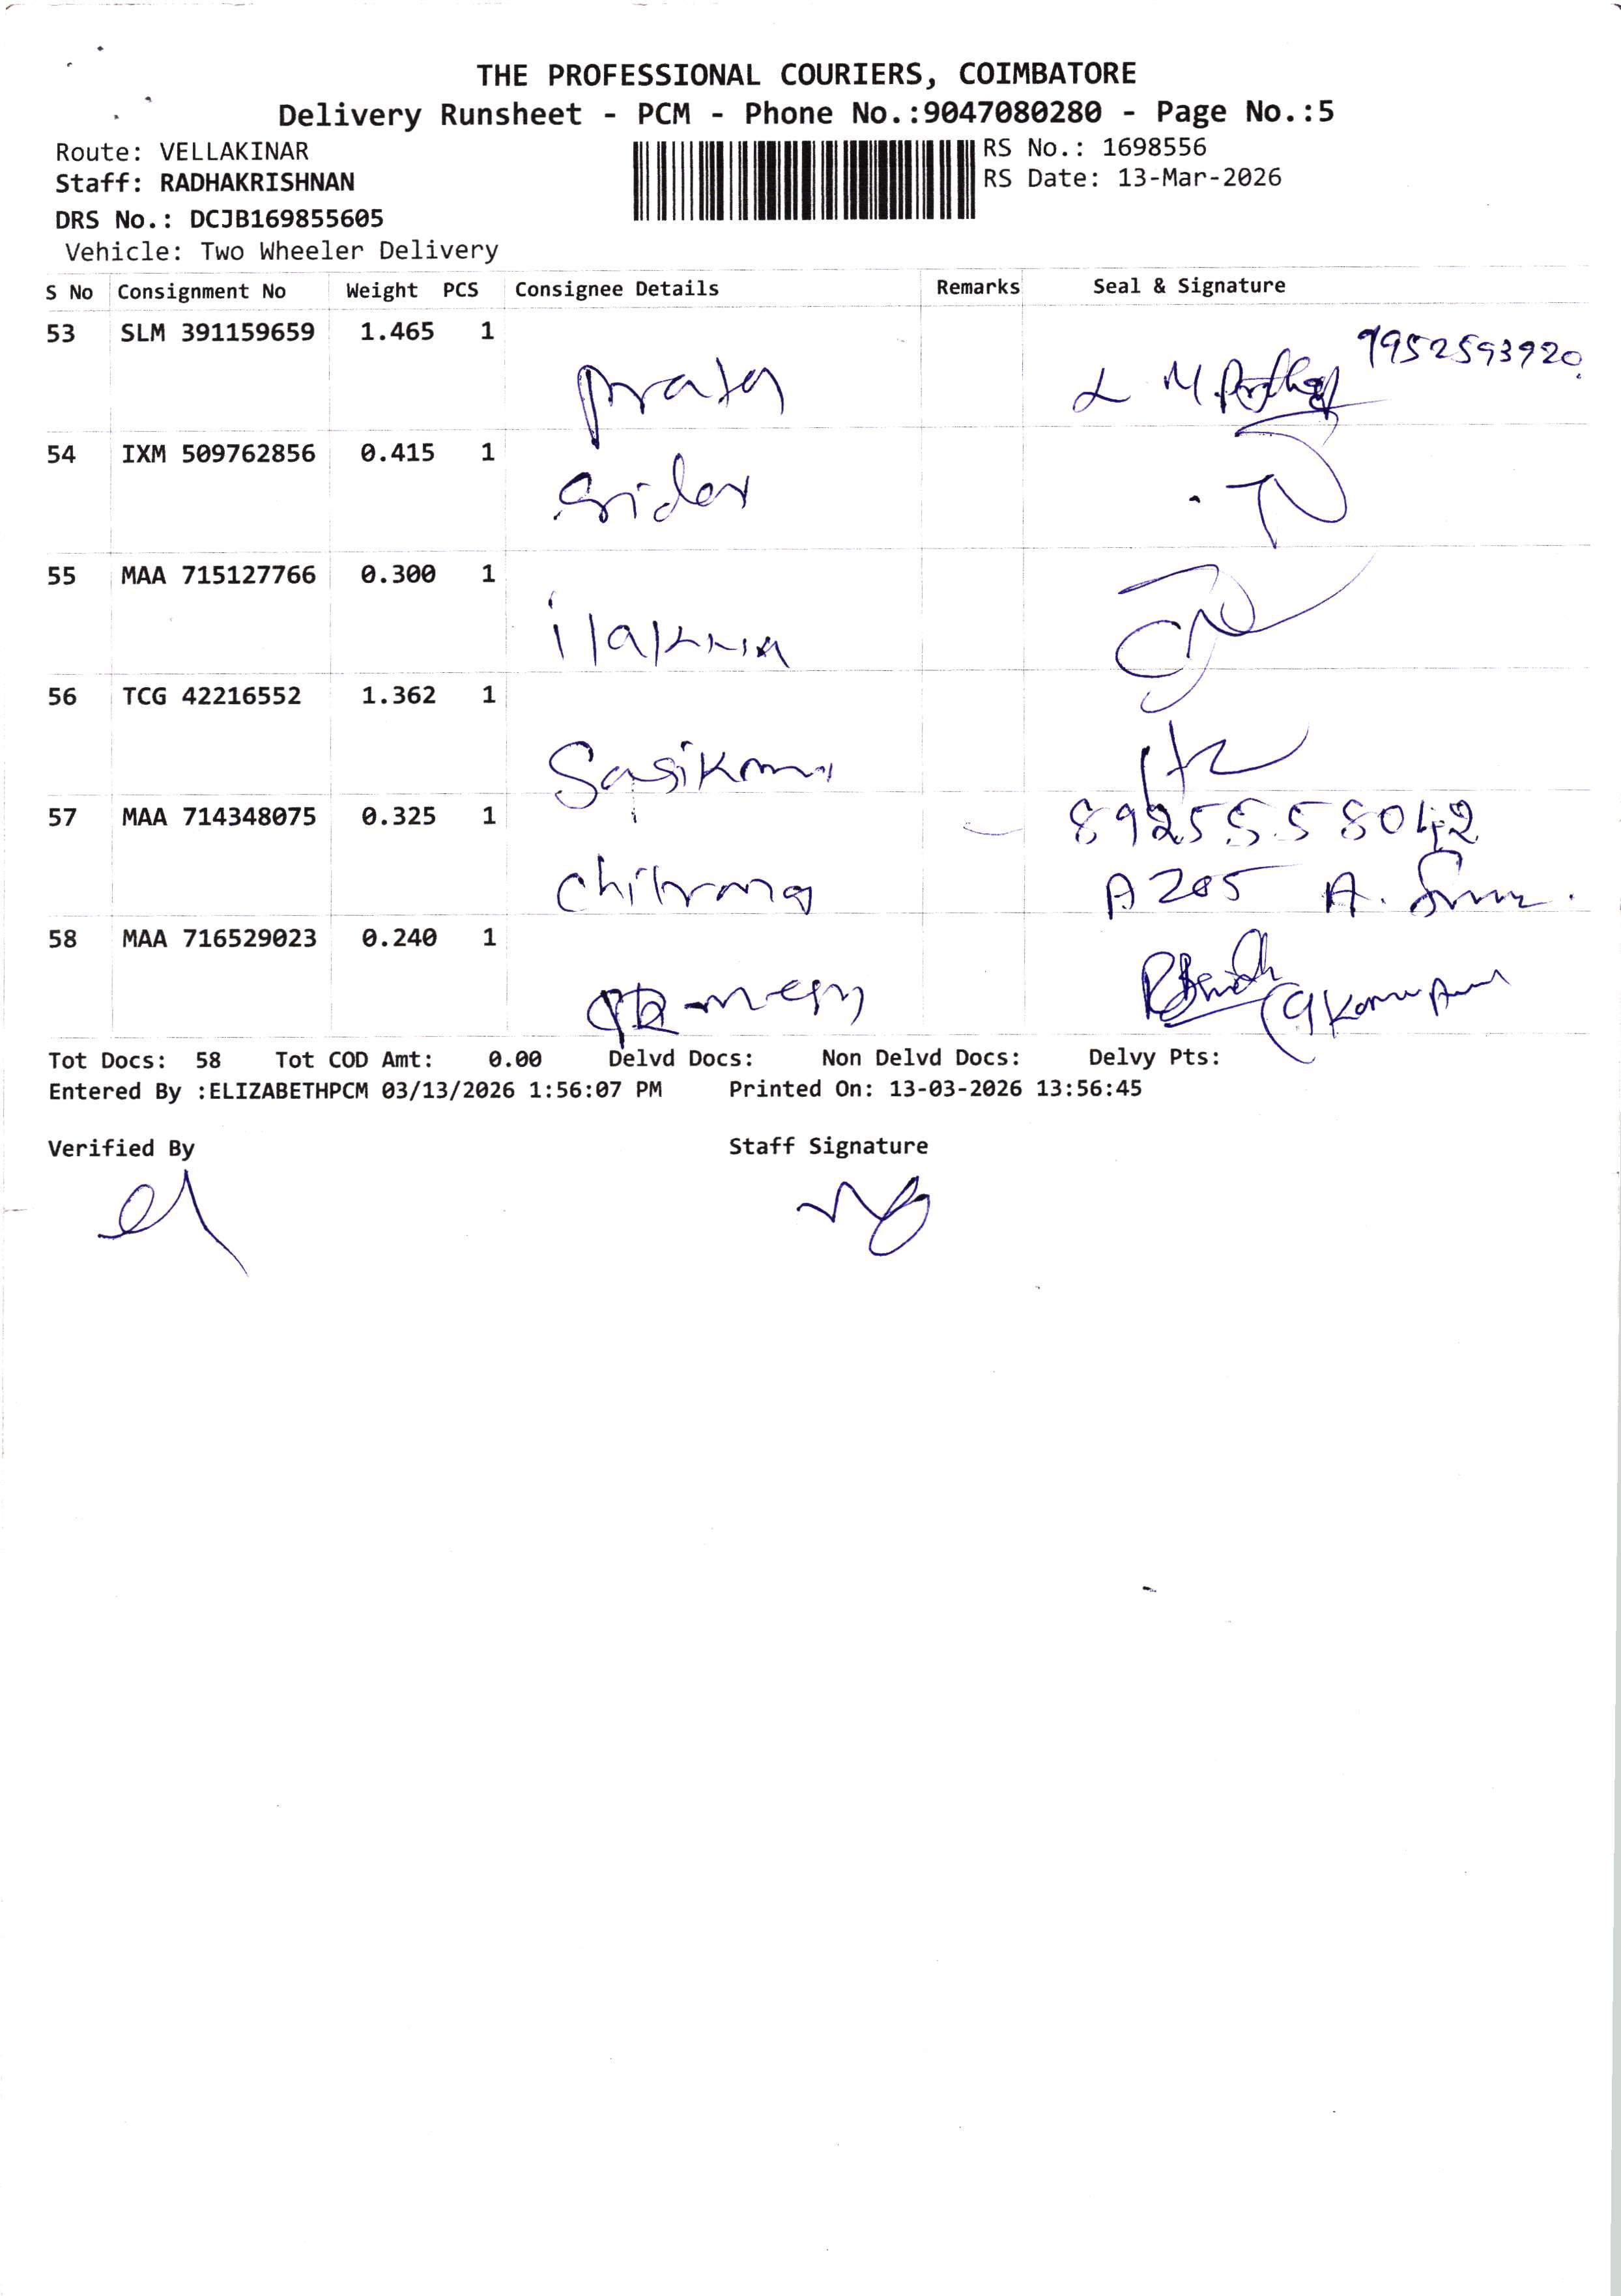 THE PROFESSIONAL COURIERS, COIMBATORE
Delivery Runsheet - PCM - Phone No.:9047080280 - Page No.:5
Route: VELLAKINAR
RS No.: 1698556
Staff: RADHAKRISHNAN
RS Date: 13-Mar-2026
DRS No.: DCJB169855605
Vehicle: Two Wheeler Delivery
S No Consignment No Weight PCS Consignee Details Remarks Seal & Signature
53 SLM 391159659 1.465 1
9952593920
54 IXM 509762856 0.415 1
Sridar
55 MAA 715127766 0.300 1
56 TCG 42216552 1.362 1
57 MAA 714348075 0.325 1
A205
58 MAA 716529023 0.240 1
Tot Docs: 58 Tot COD Amt: 0.00 Delvd Docs: Non Delvd Docs: Delvy Pts:
Entered By :ELIZABETHPCM 03/13/2026 1:56:07 PM Printed On: 13-03-2026 13:56:45
Verified By Staff Signature